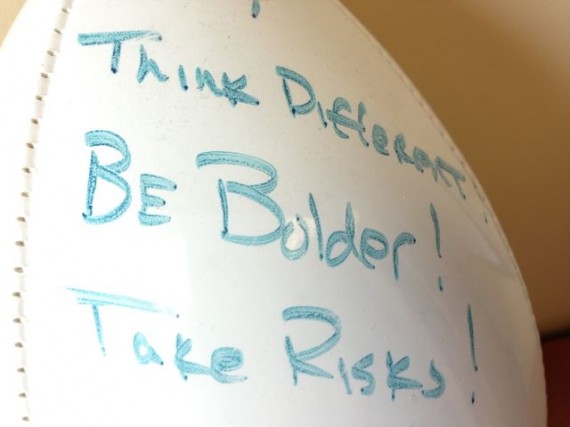 Think Different!
Be Bolder!
Take Risks!